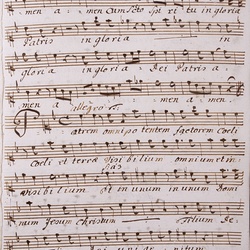 men a men cum Scto Spi ri tu in gloria
Patris in gloria in
gloria in gloria Dei Patris a
men a men a men
Allegro
Patrem omnipotentem factorem Coeli
Coeli et terrae Visi bilium omnium et in
Visibilium et in unum in unum Domi
num Jesum Christum Filium De